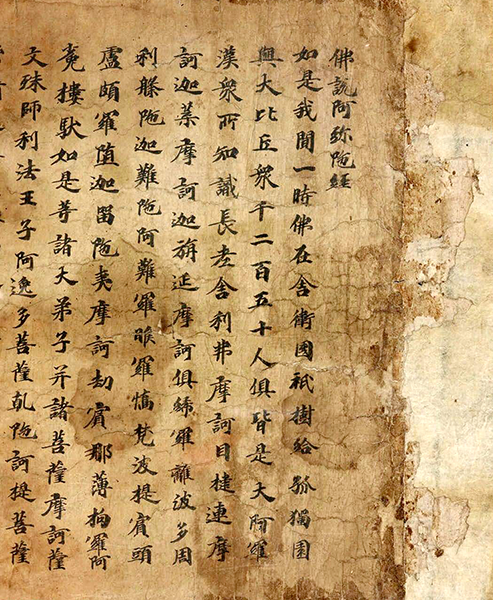 佛說阿弥陁經
如是我聞一時佛在舍衛國祇樹給孤獨園
與大比丘衆千二百五十人俱皆是大阿羅
漢衆所知識長老舍利弗摩訶目揵連摩
訶迦葉摩訶迦旃延摩訶俱絺羅離波多周
利槃陁迦難陁阿難羅睺羅憍梵波提賓頭
盧頗羅墮迦留陁夷摩訶劫賓那薄拘羅阿
㝹樓馱如是等諸大弟子并諸菩薩摩訶薩
文殊師利法王子阿逸多菩薩乹陁訶提菩薩